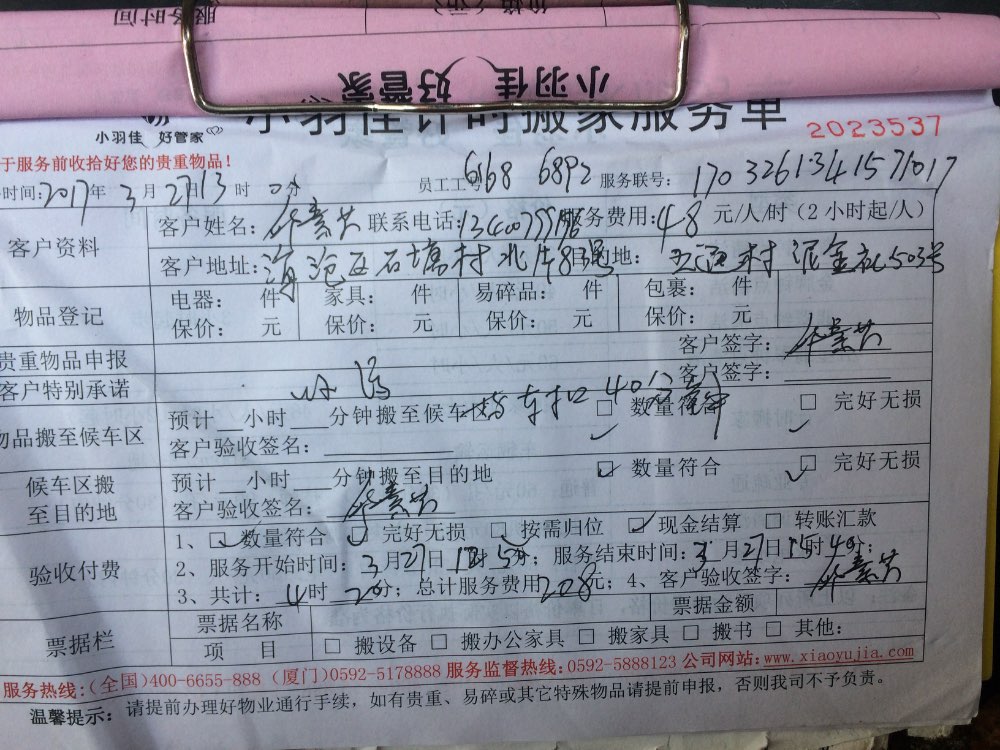 服务时间 价格(元)
小羽佳 好管家
小羽佳 好管家
小羽佳计时搬家服务单 2023537
于服务前收拾好您的贵重物品!
时间:2017年3月27日13时0分 员工工号 6168 6892 服务联号: 170326134157 1017
客户资料
客户姓名: 联系电话: 服务费用:48元/人/时(2小时起/人)
客户地址:海沧区石塘村北片8号 目的地:
物品登记
电器: 件 家具: 件 易碎品: 件 包裹: 件
保价: 元 保价: 元 保价: 元 保价: 元
贵重物品申报 客户签字:
客户特别承诺 客户签字:
物品搬至候车区
预计__小时__分钟搬至候车 □ 数量符合 □ 完好无损
客户验收签名:
候车区搬至目的地
预计__小时__分钟搬至目的地 □ 数量符合 □ 完好无损
客户验收签名:
验收付费
1、□数量符合 □ 完好无损 □ 按需归位 □ 现金结算 □ 转账汇款
2、服务开始时间:3月27日 时5分;服务结束时间:3月27日15时40分;
3、共计:4时20分;总计服务费用208元;4、客户验收签字:
票据栏
票据名称 票据金额
项 目 □ 搬设备 □ 搬办公家具 □ 搬家具 □ 搬书 □ 其他:
服务热线:(全国)400-6655-888 (厦门)0592-5178888 服务监督热线:0592-5888123 公司网站:www.xiaoyujia.com
温馨提示: 请提前办理好物业通行手续,如有贵重、易碎或其它特殊物品请提前申报,否则我司不予负责。